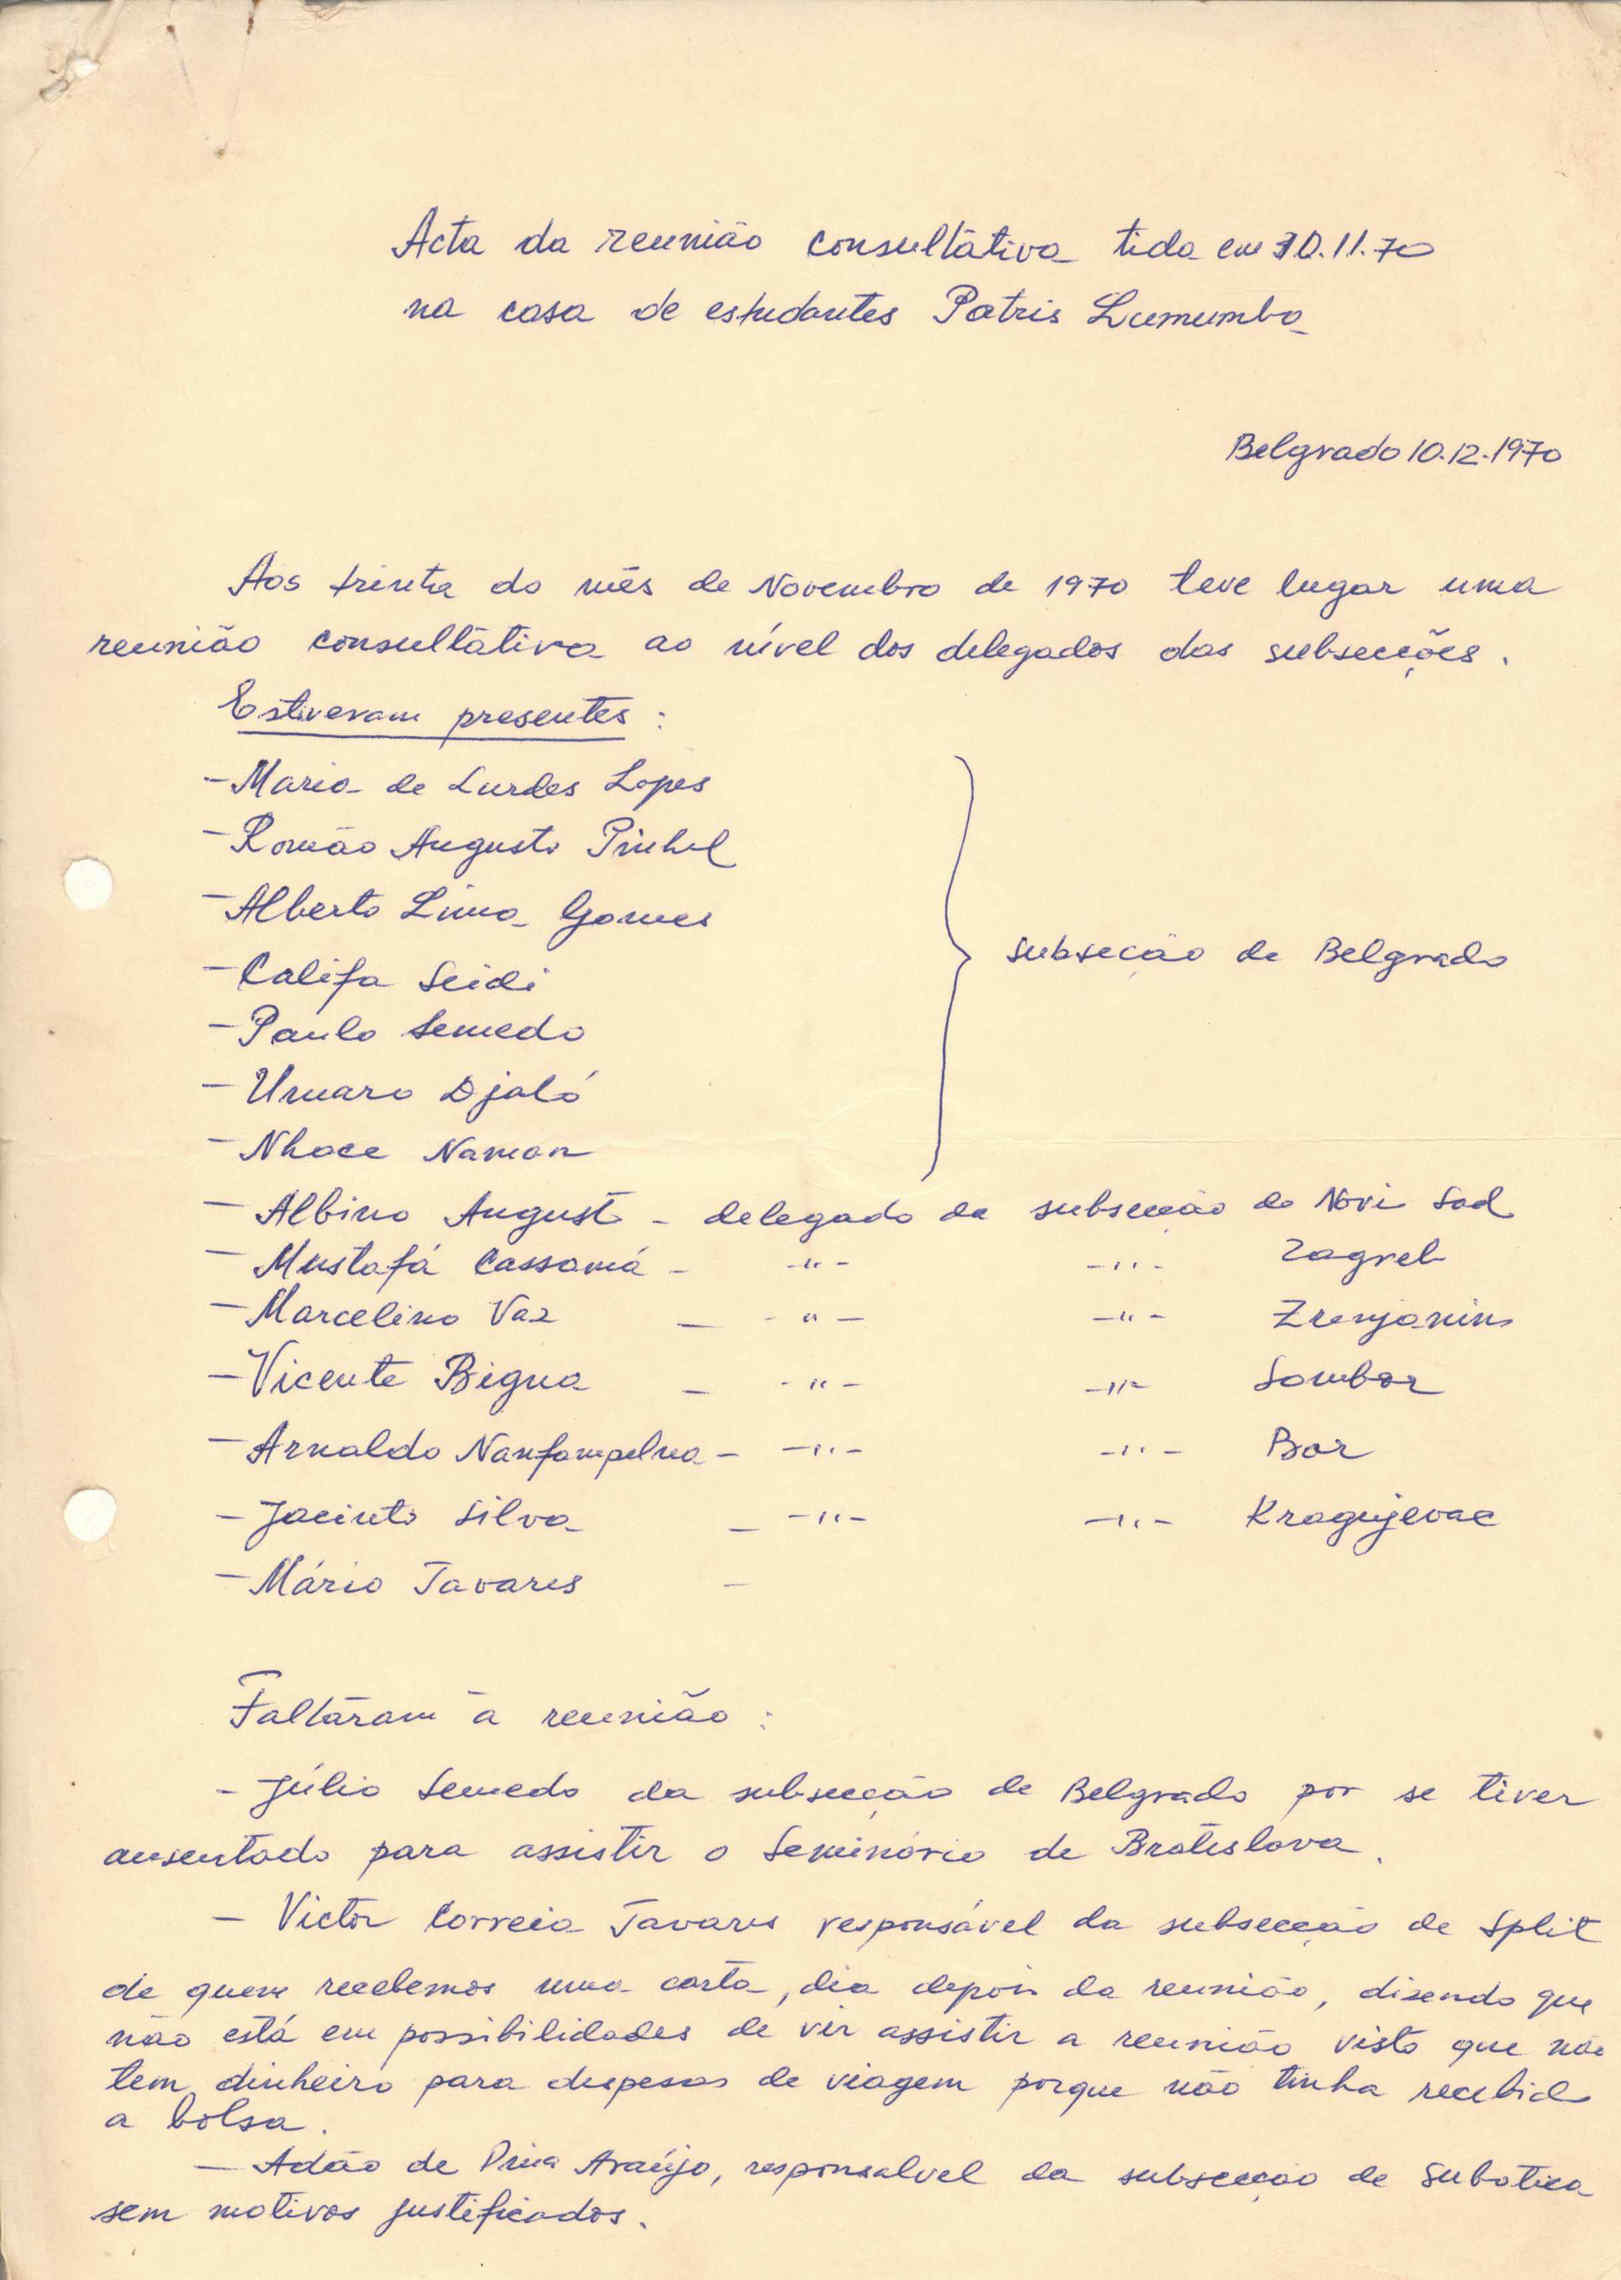 Acta da reunião consultãtiva tida em 30.11.70
na casa de estudantes Patris Lumumba
Belgrado 10.12.1970
Aos trinta do mês de Novembro de 1970 teve lugar uma
reunião consultãtiva ao nível dos delegados das subsecções.
Estiveram presentes :
- Maria de Lurdes Lopes
- Romão Augusto Pinhel
- Alberto Lima Gomes
- Califa Seidi
subseção de Belgrado
- Paulo Semedo
- Umaro Djaló
- Nhoce Naman
- Albino Augusto - delegado da subsecção de Novi Sad
- Mustafá Cassamá - -"- -"- Zagreb
- Marcelino Vaz - -"- -"- Zrenjanin
- Vicente Bigna - -"- -"- Sombor
- Arnaldo Nanfampelna - -"- -"- Bor
- Jacinto Silva - -"- -"- Kragujevac
- Mário Tavares -
Faltãram à reunião :
- Júlio Semedo da subsecção de Belgrado por se tiver
ausentado para assistir o Seminário de Bratislava.
- Victor Correia Tavares responsável da subsecção de Split
de quem recebemos uma carta, dia depois da reunião, disendo que
não está em possibilidades de vir assistir a reunião visto que não
tem dinheiro para despesas de viagem porque não tinha recebido
a bolsa.
- Adão de Pina Araújo, responsalvel da subsecção de Subotica
sem motivos justificados.